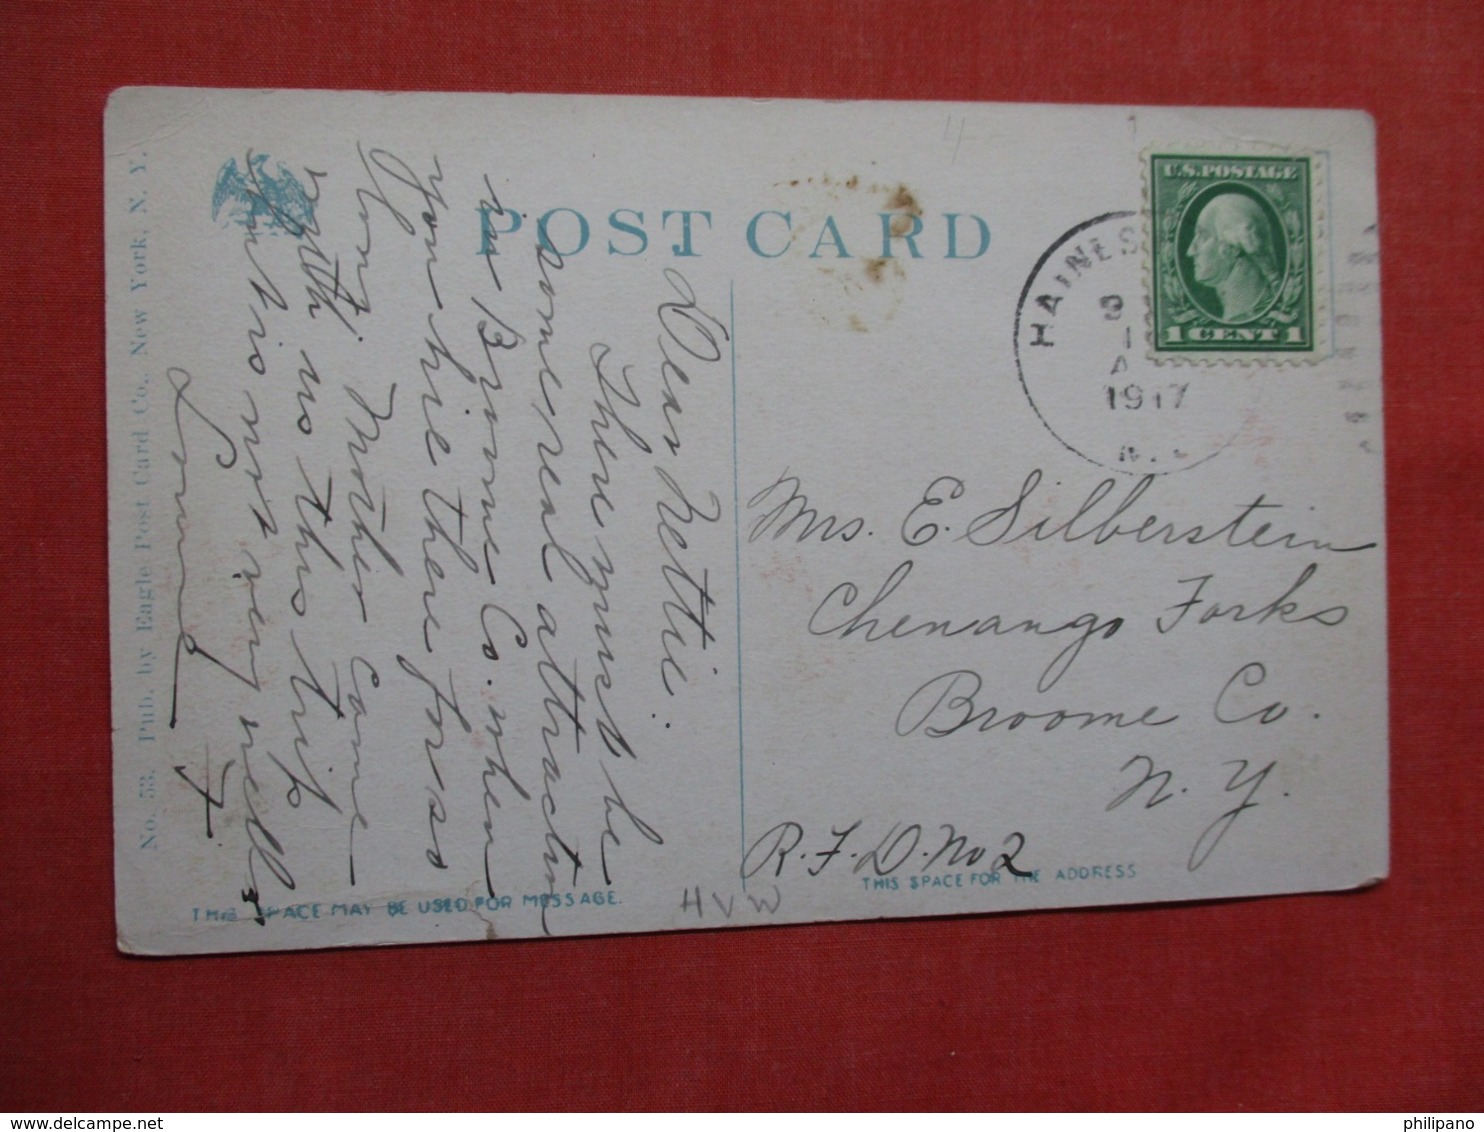 POST CARD
U.S. POSTAGE
1 CENT 1
HAINES
9
1
A
1917
Dear Nettie.
There must be
some real attraction
in Broome Co. when
you hie there for so
long. Mother came
with us this trip
but is not very well.
Louise F.
Mrs. E. Silberstein
Chenango Forks
Broome Co.
N. Y.
R.F.D. No 2
No. 53. Pub. by Eagle Post Card Co., New York, N. Y.
THIS SPACE MAY BE USED FOR MESSAGE.
HVW
THIS SPACE FOR THE ADDRESS
4
philipano